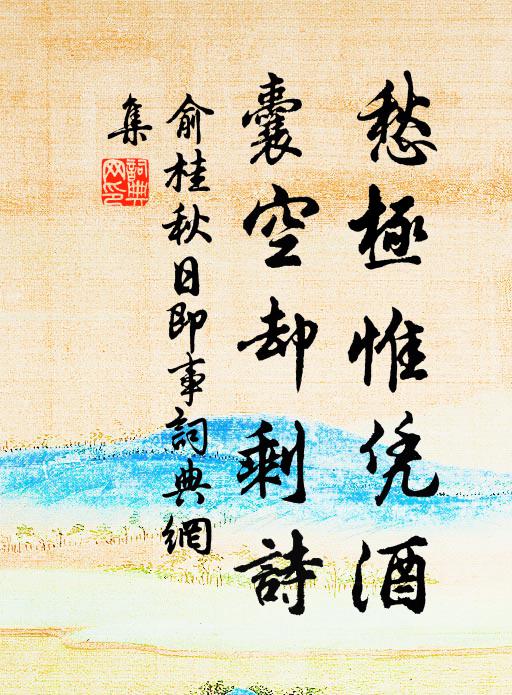 愁極惟凭酒
囊空却剩詩
俞桂秋日即事詞典網
集
詞典
网印